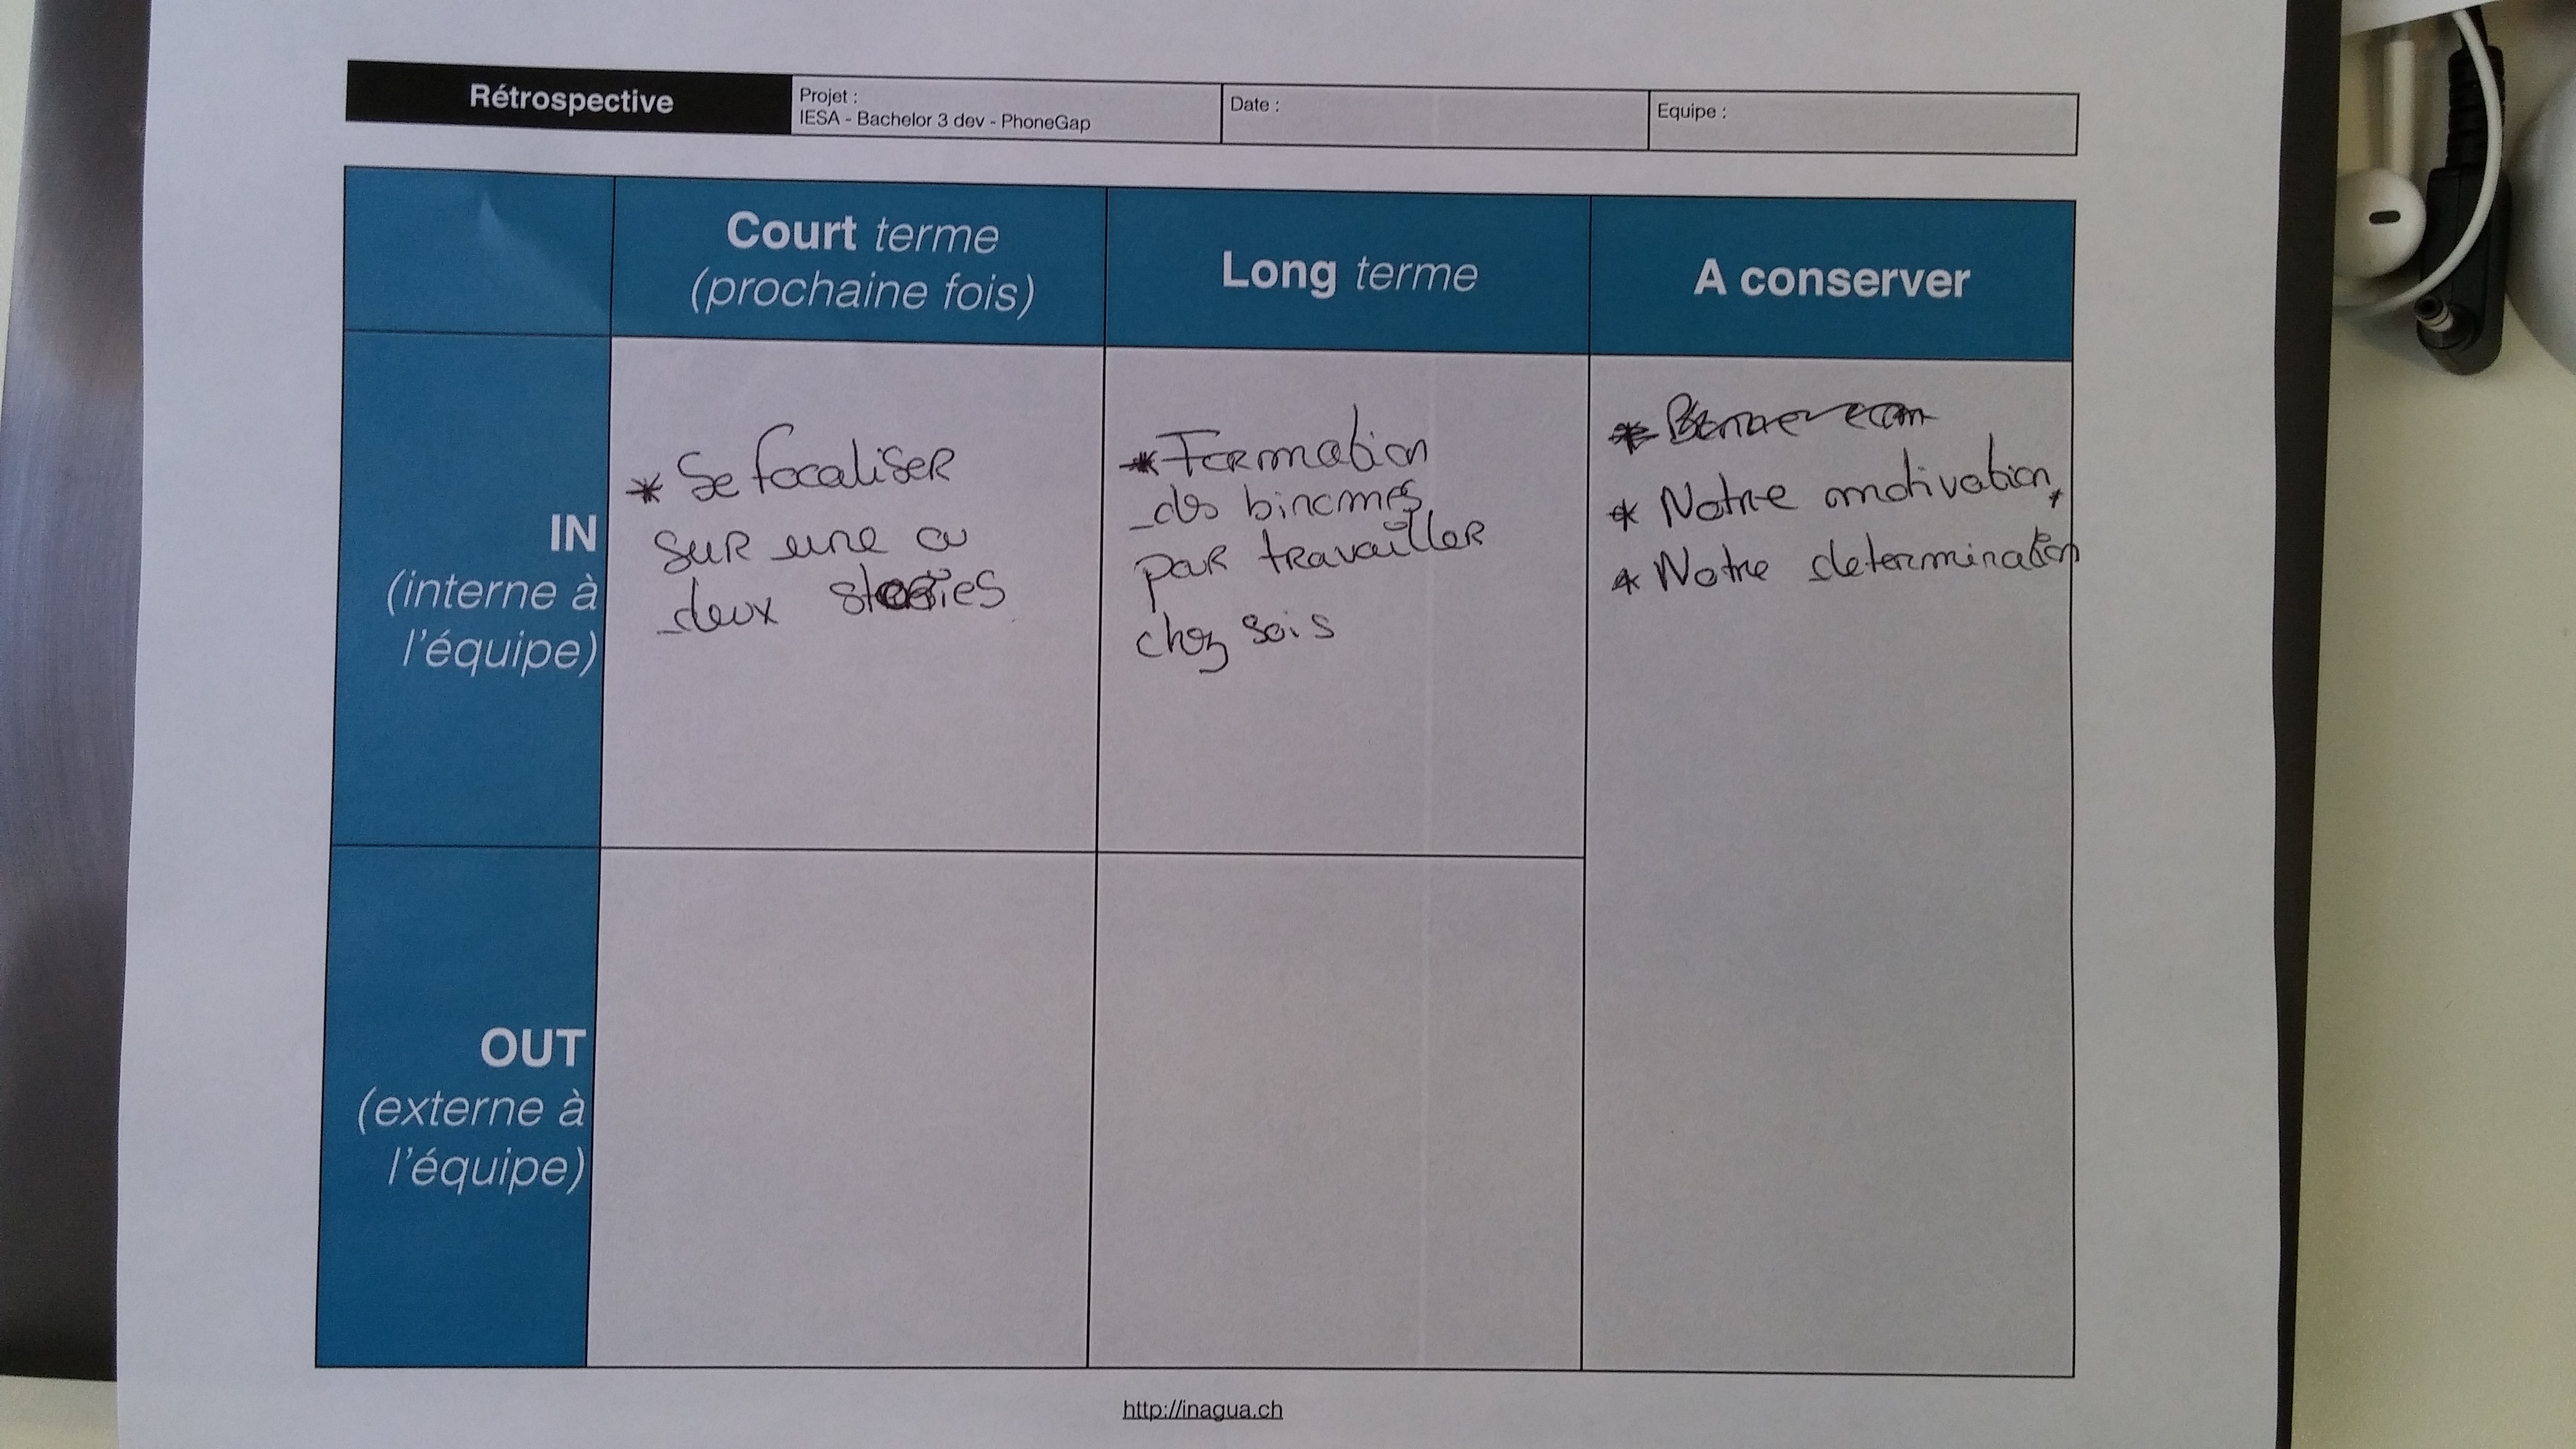 Rétrospective
Projet :
IESA - Bachelor 3 dev - PhoneGap
Date :
Equipe :
Court terme
(prochaine fois)
Long terme
A conserver
IN
(interne à
l'équipe)
* Se focaliser
sur une ou
deux stories
* Formation
des binomes
pour travailler
chez sois
* Notre motivation
* Notre determination
OUT
(externe à
l'équipe)
http://inagua.ch